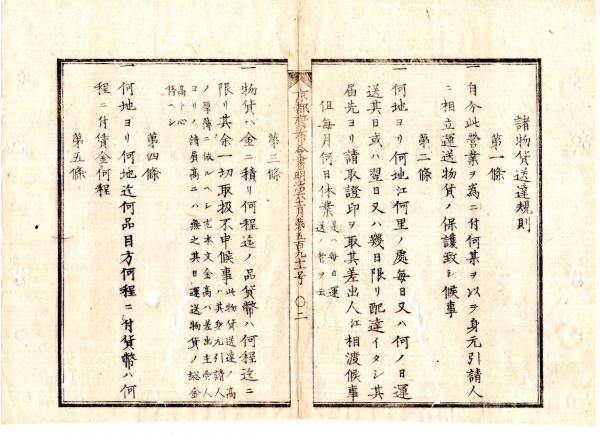 諸物貨送達規則
第一條
一 自今此營業ヲ為ニ付何某ヲ以テ身元引請人
ニ相立運送物貨ノ保護致シ候事
第二條
一 何地ヨリ何地江何里ノ處毎日又ハ何ノ日運
送其日或ハ翌日又ハ幾日限リ配達イタシ其
届先ヨリ請取證印ヲ取其差出人江相渡候事
但毎月何日休業 是ハ毎日運
送ノ者ヲ云
京都府布令書明治六十月第五百九十一号 〇二
第三條
一 物貨ハ金ニ積リ何程迄ノ品貨幣ハ何程迄ニ
限リ其余一切取扱不申候事 此物貨送達ノ高
ハ其身元引請人
ノ厚薄ニ依ルヘシ尤本文金高ハ差出主壱人
ヨリノ請負高ニハ無之其日運送物貨ノ総金
高ト心
得ヘシ
第四條
一 何地ヨリ何地迄何品目方何程ニ付貨幣ハ何
程ニ付賃金何程
第五條